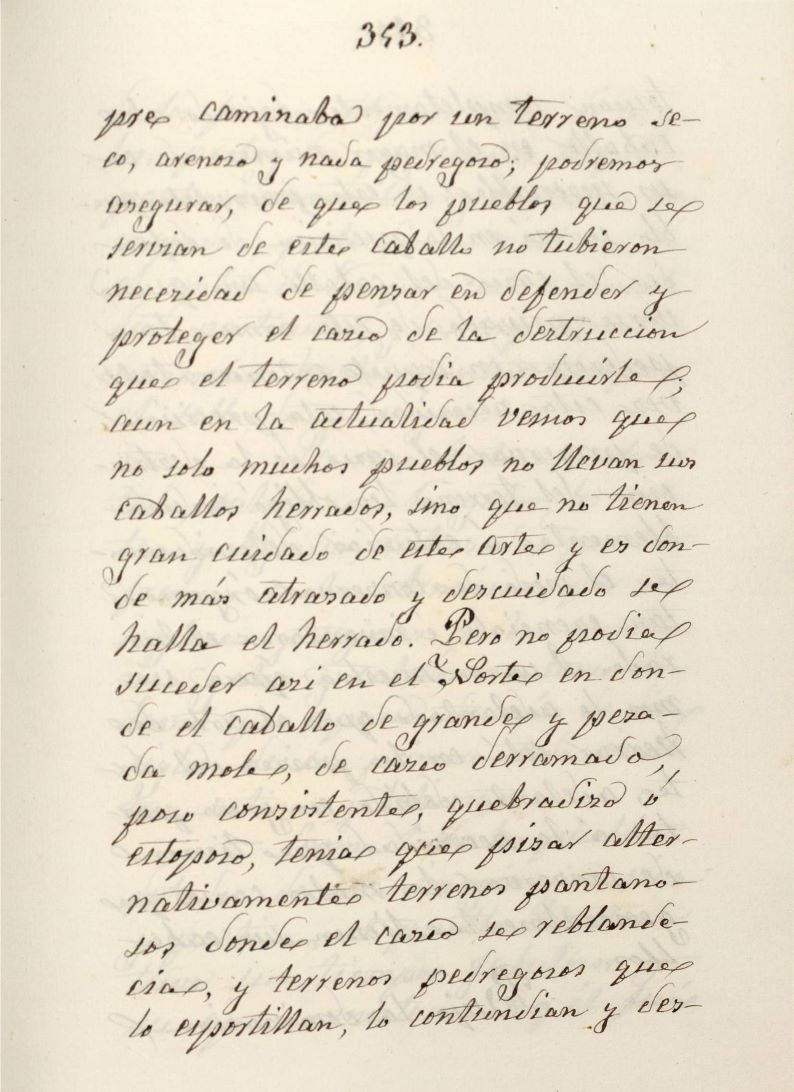 353.
pre caminaba por un terreno se-
co, arenoso y nada pedregoso; podremos
asegurar, de que los pueblos que se
servian de este caballo no tubieron
necesidad de pensar en defender y
proteger el casco de la destruccion
que el terreno podia producirle;
aun en la actualidad vemos que
no solo muchos pueblos no llevan sus
caballos herrados, sino que no tienen
gran cuidado de este arte y es don-
de más atrasado y descuidado se
halla el herrado. Pero no podia
suceder asi en el Norte en don-
de el caballo de grande y pesa-
da mole, de casco derramado,
poco consistente, quebradizo ó
estoposo, tenia que pisar alter-
nativamente terrenos pantano-
sos donde el casco se reblande-
cia, y terrenos pedregosos que
lo esportillan, lo contundian y des-